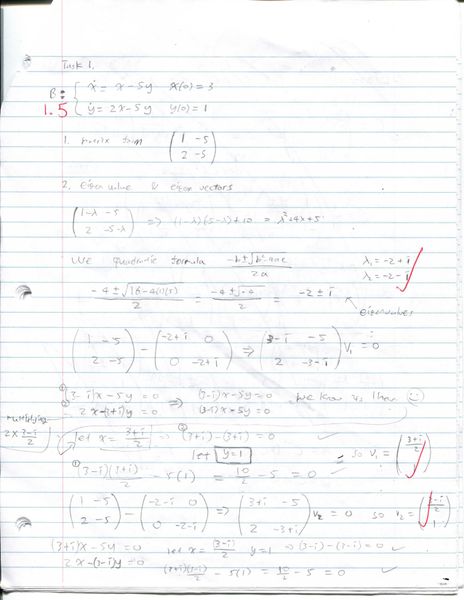 Task 1.
B: { ẋ = x - 5y   x(0) = 3
1.5
ẏ = 2x - 5y   y(0) = 1
1. matrix form ( 1 -5 ; 2 -5 )
2. eigen value & eigen vectors
( 1-λ -5 ; 2 -5-λ ) => (1-λ)(-5-λ)+10 = λ²+4λ+5
Use quadratic formula (-b ± √(b²-4ac))/2a   λ₁ = -2+i
λ₂ = -2-i
(-4 ± √(16-4(1)(5)))/2 = (-4 ± √-4)/2 = -2 ± i
eigenvalues
( 1 -5 ; 2 -5 ) - ( -2+i 0 ; 0 -2+i ) => ( 3-i -5 ; 2 -3-i ) V₁ = 0
① (3-i)x - 5y = 0 => (3-i)x - 5y = 0   we know us than ☺
② 2x-(3+i)y = 0   (3-i)x - 5y = 0
multiplying 2 x (3-i)/2
let x = (3+i)/2 => ② (3+i)-(3+i) = 0 ✓
let y=1   => so V₁ = ( (3+i)/2 ; 1 )
① (3-i)(3+i)/2 - 5(1) = 10/2 - 5 = 0 ✓
( 1 -5 ; 2 -5 ) - ( -2-i 0 ; 0 -2-i ) => ( 3+i -5 ; 2 -3+i ) V₂ = 0   so V₂ = ( (3-i)/2 ; 1 )
(3+i)x - 5y = 0   let x = (3-i)/2   y=1 -> (3-i)-(3-i) = 0 ✓
2x-(3-i)y = 0   (3+i)(3-i)/2 - 5(1) = 10/2 - 5 = 0 ✓